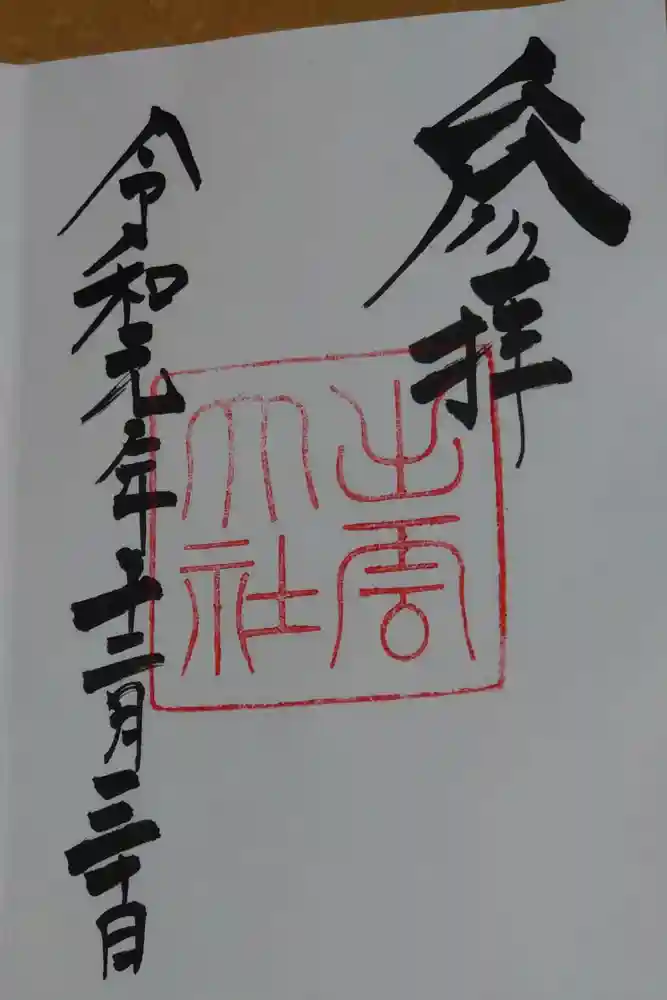 参拝
出雲
大社
令和元年十二月三十日